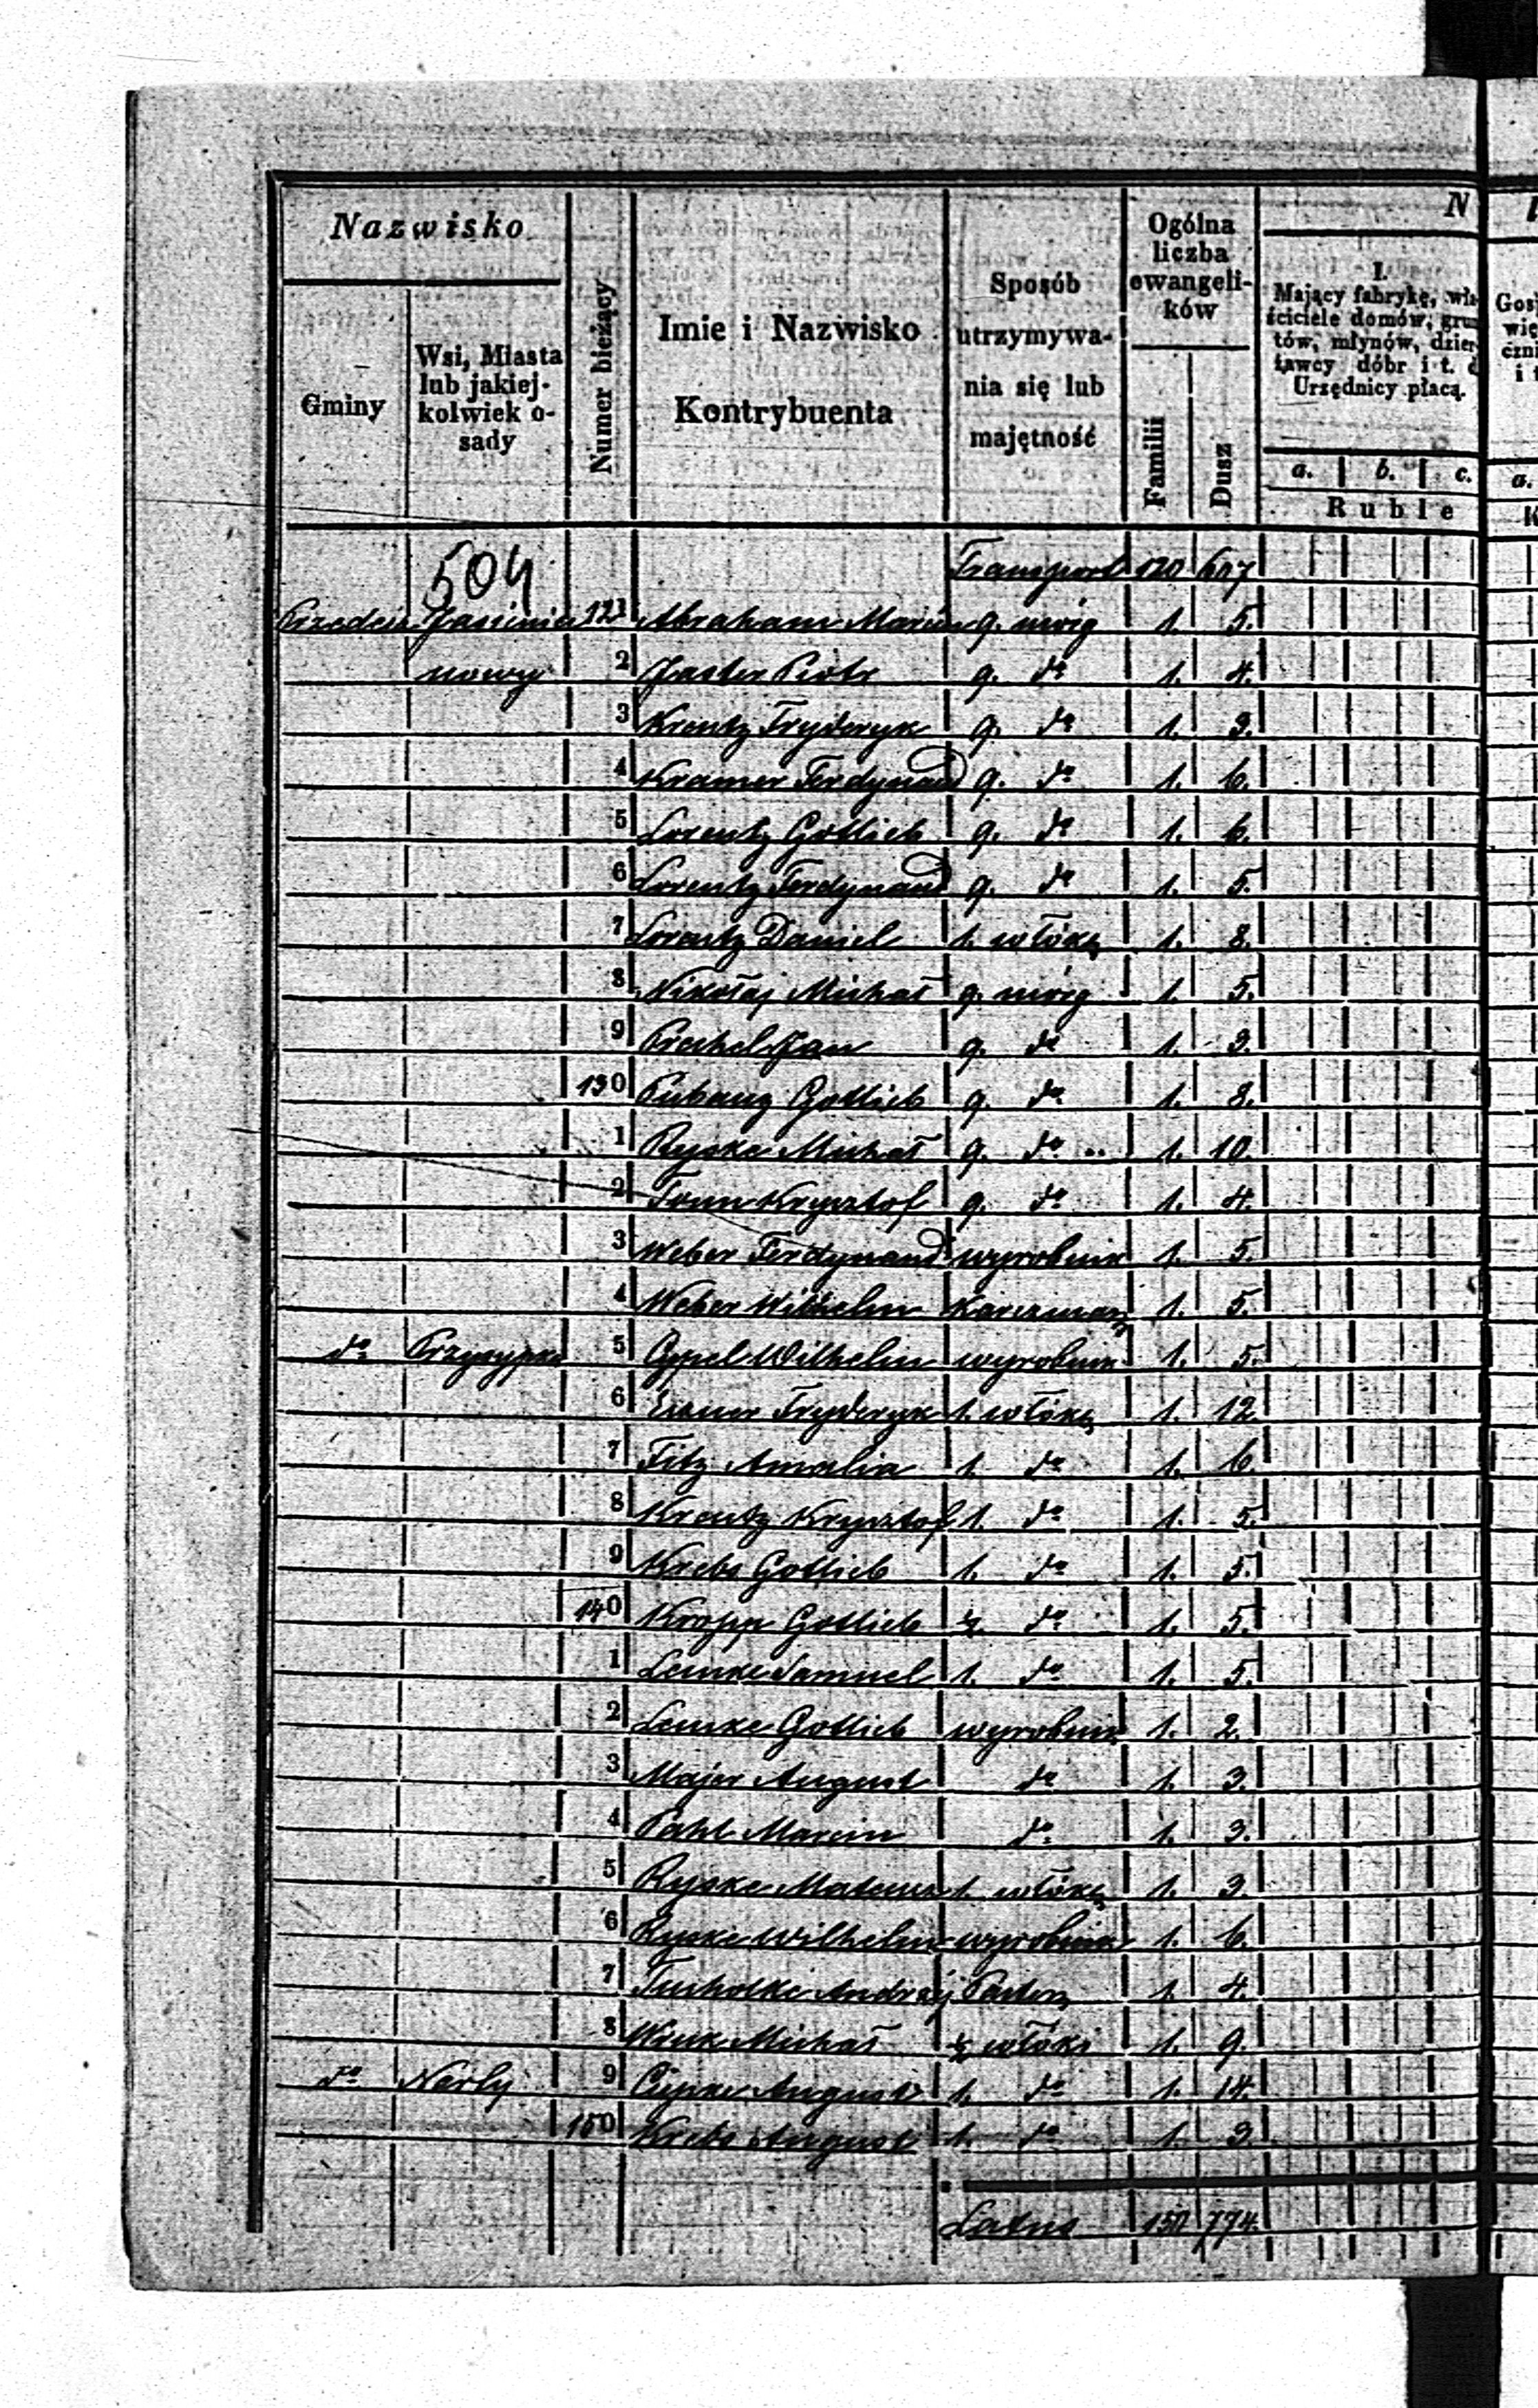 Nazwisko
Gminy
Wsi, Miasta
lub jakiej-
kolwiek o-
sady
Numer bieżący
Imie i Nazwisko
Kontrybuenta
Sposób
utrzymywa-
nia się lub
majętność
Ogólna
liczba
ewangeli-
ków
Familii
Dusz
N
I.
Mający fabrykę, wła-
ściciele domów, grun
tów, młynów, dzier-
żawcy dóbr i t. d
Urzędnicy płacą.
a. b. c.
Ruble
504
Transport 120 607
121 Abraham Marcin 9. mórg 1. 5.
nowy 2 Jaster Piotr 9. do 1. 4.
3 Krentz Fryderyk 9. do 1. 3.
4 Kramer Ferdynand 9. do 1. 6.
5 Lorentz Gottlieb 9. do 1. 6.
6 Lorentz Ferdynand 9. do 1. 5.
7 Lorentz Daniel 1. włókę 1. 8.
8 Nikołaj Michał 9. mórg 1. 5.
9 Prechel Jan 9. do 1. 3.
130 Gottlieb 9. do 1. 8.
1 Ryske Michał 9. do 1. 10.
2 Tonn Krysztof 9. do 1. 4.
3 Weber Ferdynand wyrobnik 1. 5.
4 Weber Wilhelm Karczmarz 1. 5.
do Przysypka 5 Appel Wilhelm wyrobnik 1. 5.
6 Fryderyk 1. włókę 1. 12
7 Fitz Amalia 1. do 1. 6.
8 Krentz Krysztof 1. do 1. 5.
9 Krebs Gottlieb 1. do 1. 5.
140 Kropp Gottlieb do 1. 5.
1 Lemke Samuel 1. do 1. 5.
2 Lemke Gottlieb wyrobnik 1. 2.
3 Majer August do 1. 3.
4 Pahl Marcin do 1. 3.
5 Ryske Mateusz 1. włókę 1. 3.
6 Ryske Wilhelm wyrobnik 1. 6.
7 Tucholke Andrzej 1. 4.
8 Wruk Michał ½ włóki 1. 9.
do Nerly 9 August 1. do 1. 14.
150 Krebs August 1. do 1. 3.
Latus 150 774.